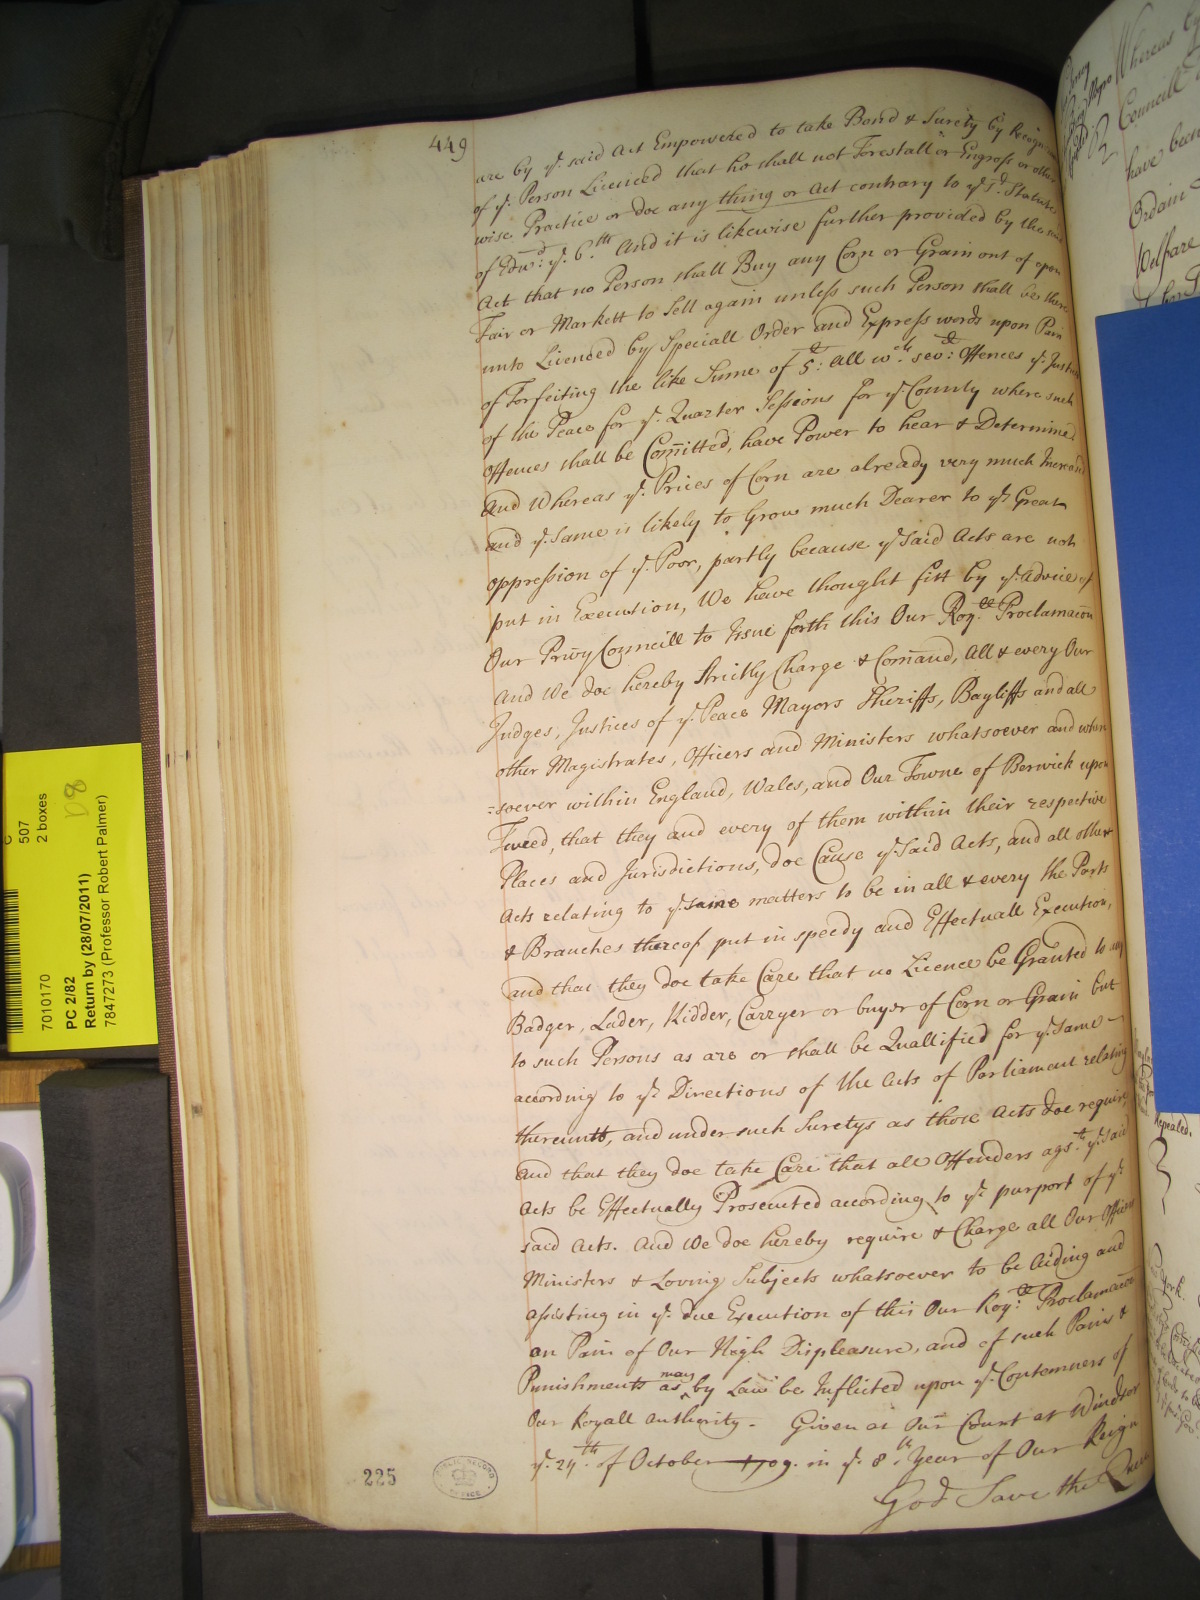 449
are by yᵉ said Act Empowered to take Bond & Surety by Recogni
of yᵉ Person Licenced that he shall not Forestall or Engross or other
wise Practice or doe any thing or Act contrary to yᵉ sᵈ Statute
of Edwᵈ: yᵉ 6ᵗʰ. And it is likewise further provided by the said
Act that no Person shall Buy any Corn or Grain out of open
Fair or Markett to Sell again unless such Person shall be there
unto Licenced by Speciall Order and Express words upon Pain
of Forfeiting the like Sume of 5ˡ: All wᶜʰ sevˡ: Offences yᵉ Justices
of the Peace for yᵉ Quarter Sessions for yᵉ County where such
Offences shall be Com̄itted, have Power to hear & Determine
And Whereas yᵉ Prices of Corn are already very much Increased
and yᵉ Same is likely to Grow much Dearer to yᵉ Great
oppression of yᵉ Poor, partly because yᵉ Said Acts are not
put in Execution, We have thought fitt by yᵉ Advice of
Our Privy Councill to Issue forth this Our Royˡˡ Proclamac̄on
And We doe hereby Strictly Charge & Com̄and, All & every Our
Judges, Justices of yᵉ Peace Mayors Sheriffs, Bayliffs and all
other Magistrates, Officers and Ministers whatsoever and where
=soever within England, Wales, and Our Towne of Berwick upon
Tweed, that they and every of them within their respective
Places and Jurisdictions, doe Cause yᵉ Said Acts, and all other
Acts relating to yᵉ same matters to be in all & every the Parts
& Branches thereof put in speedy and Effectuall Execution,
and that they doe take Care that no Licence be Granted to any
Badger, Lader, Kidder, Carryer or buyer of Corn or Grain but
to such Persons as are or shall be Quallified for yᵉ Same
according to yᵉ Directions of the Acts of Parliament relating
thereunto, and under such Suretys as those Acts doe require
And that they doe take Care that all Offenders agsᵗ yᵉ Said
Acts be Effectually Prosecuted according to yᵉ purport of yᵉ
said Acts. And We doe hereby require & Charge all Our Officers
Ministers & Loving Subjects whatsoever to be Aiding and
assisting in yᵉ due Execution of this Our Royˡˡ: Proclamac̄on
on Pain of Our High Displeasure, and of such Pains &
Punishments as may by Law be Inflicted upon yᵉ Contemners of
Our Royall Authority. Given at Our Court at Windsor
yᵉ 24ᵗʰ of October 1709. in yᵉ 8ᵗʰ Year of Our Reign
God Save the Queen
225
PUBLIC RECORD
OFFICE
C
507
2 boxes
D8
7010170
PC 2/82
Return by (28/07/2011)
7847273 (Professor Robert Palmer)
Whereas
Councill
have been
Ordain
Welfare
Repealed.
York.